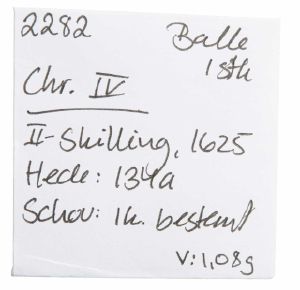 2282
Balle
1 stk
Chr. IV
II-Skilling, 1625
Hede: 134a
Schou: Ik. bestemt
V: 1,08g